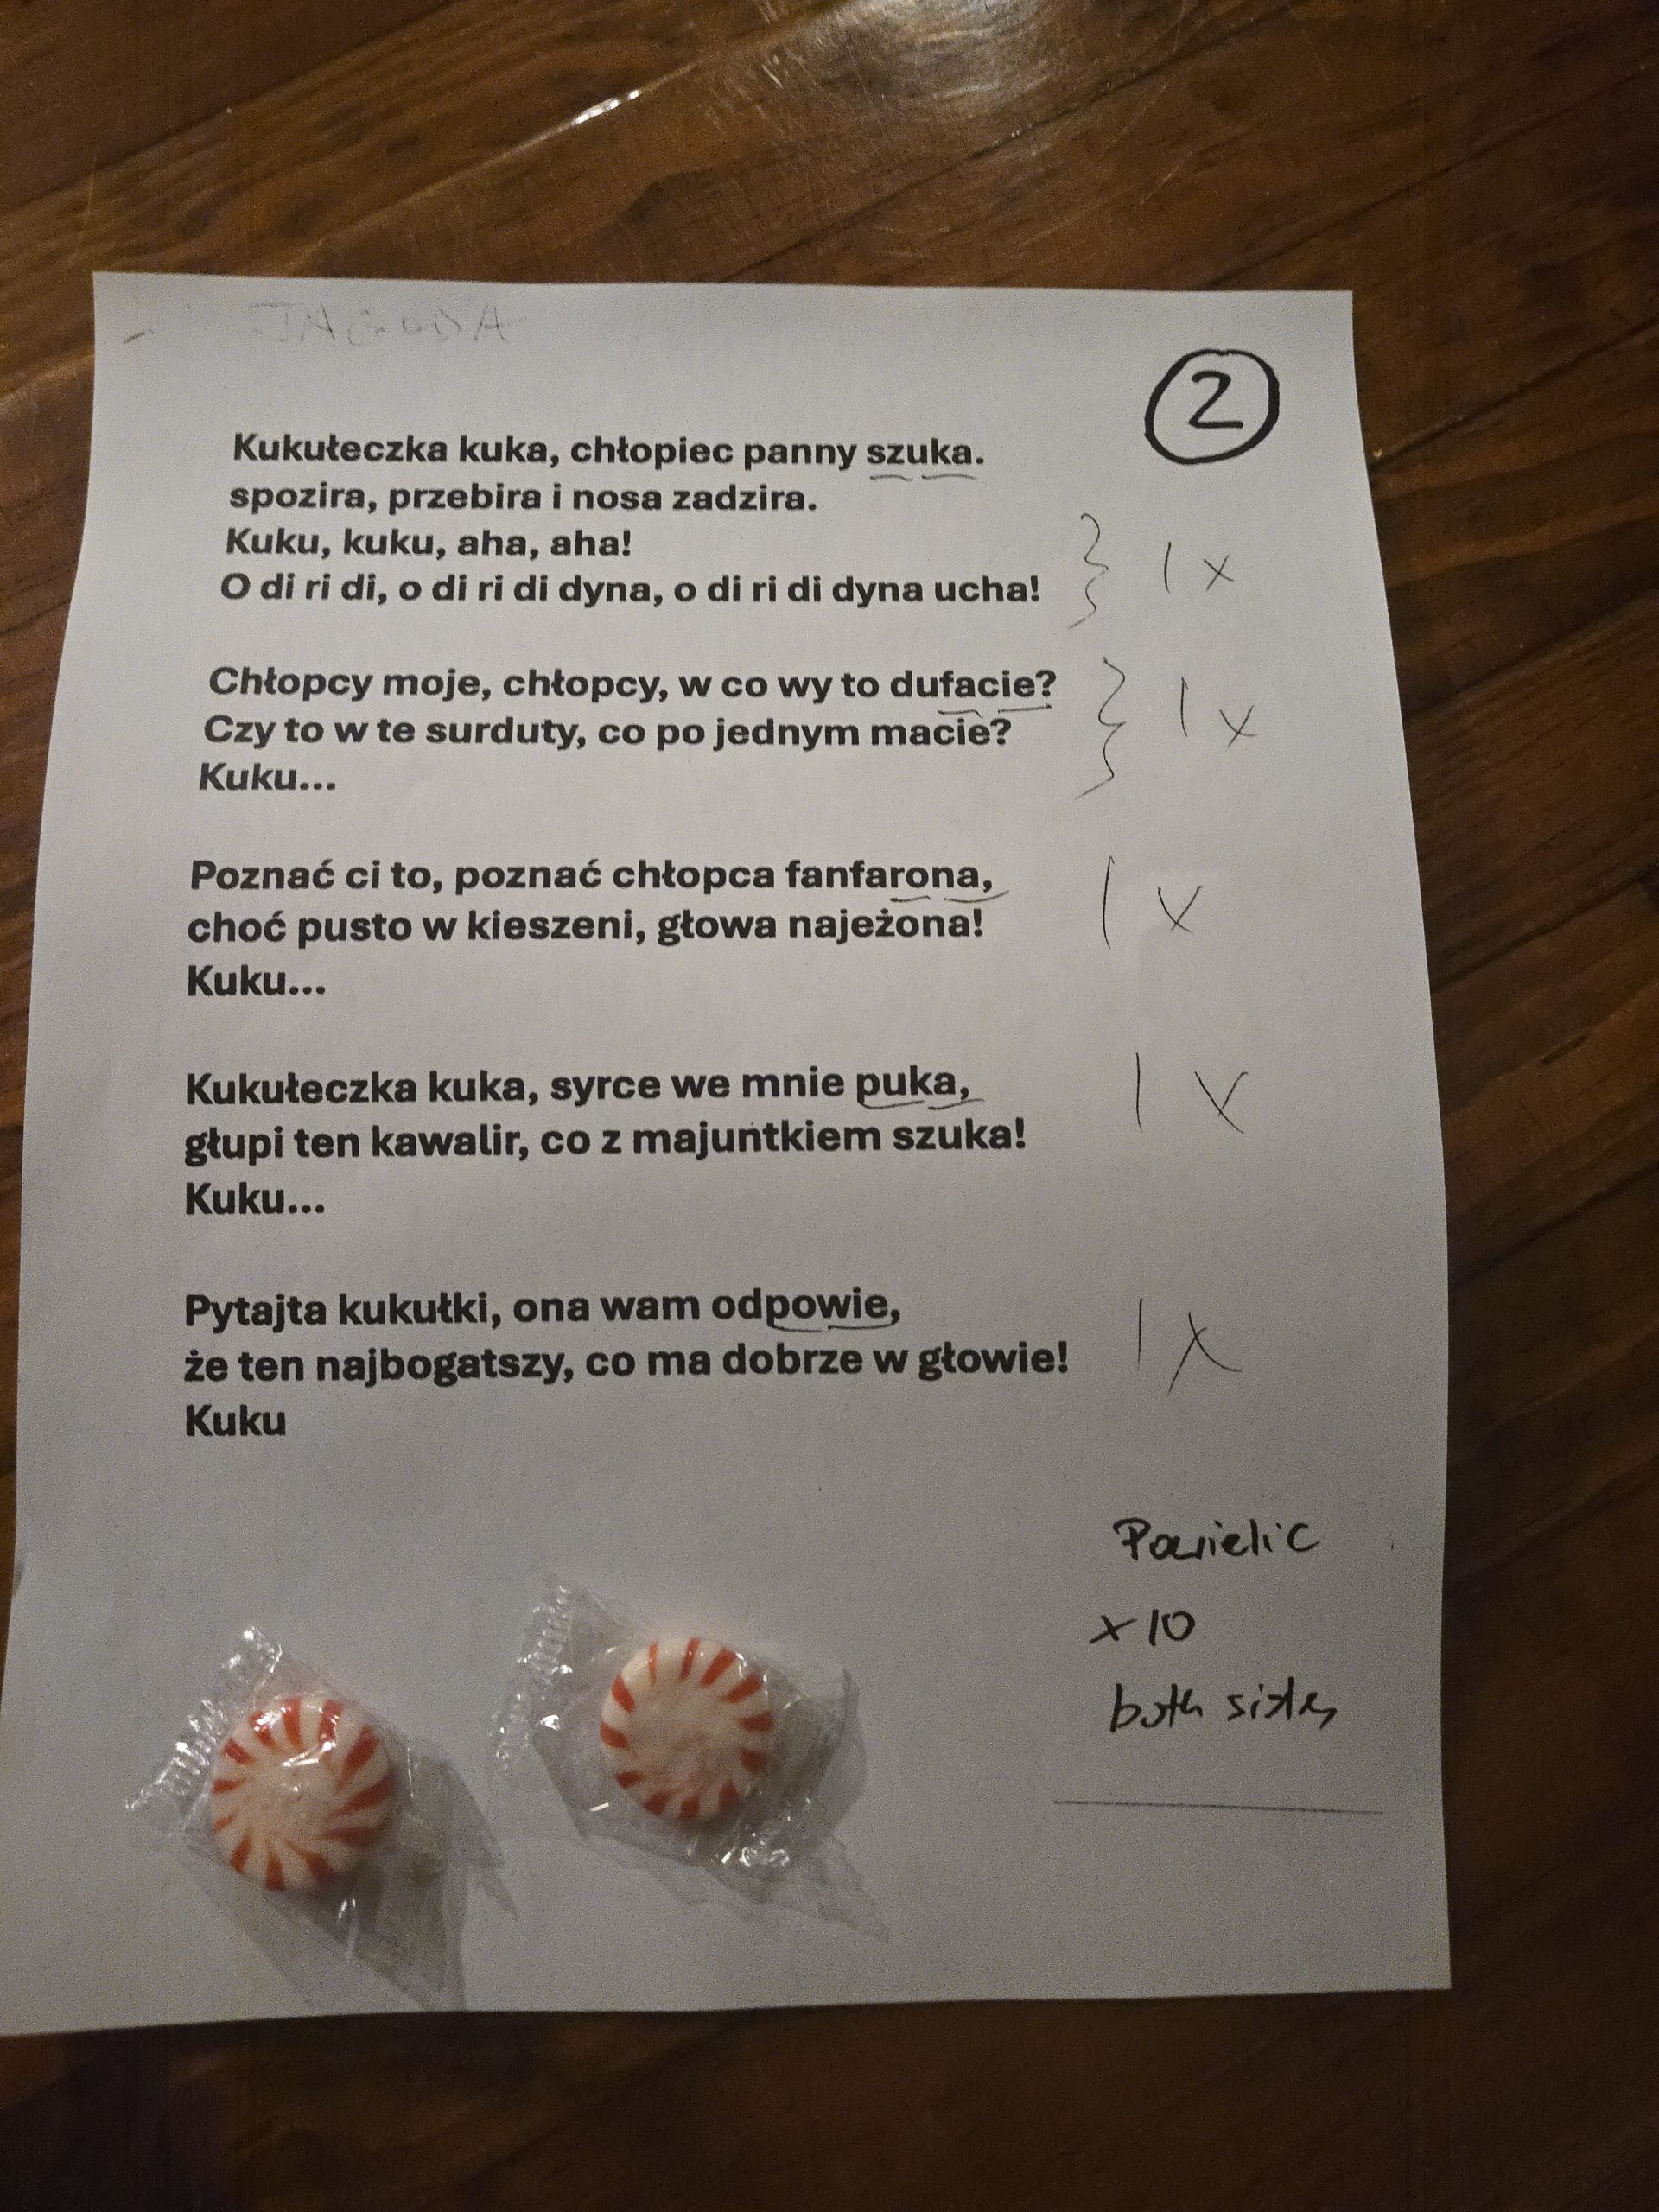 JAGODA
2
Kukułeczka kuka, chłopiec panny szuka.
spozira, przebira i nosa zadzira.
Kuku, kuku, aha, aha!
O di ri di, o di ri di dyna, o di ri di dyna ucha!
1x
Chłopcy moje, chłopcy, w co wy to dufacie?
Czy to w te surduty, co po jednym macie?
Kuku...
1x
Poznać ci to, poznać chłopca fanfarona,
choć pusto w kieszeni, głowa najeżona!
Kuku...
1x
Kukułeczka kuka, syrce we mnie puka,
głupi ten kawalir, co z majuntkiem szuka!
Kuku...
1x
Pytajta kukułki, ona wam odpowie,
że ten najbogatszy, co ma dobrze w głowie!
Kuku
1x
Powielic
x10
both